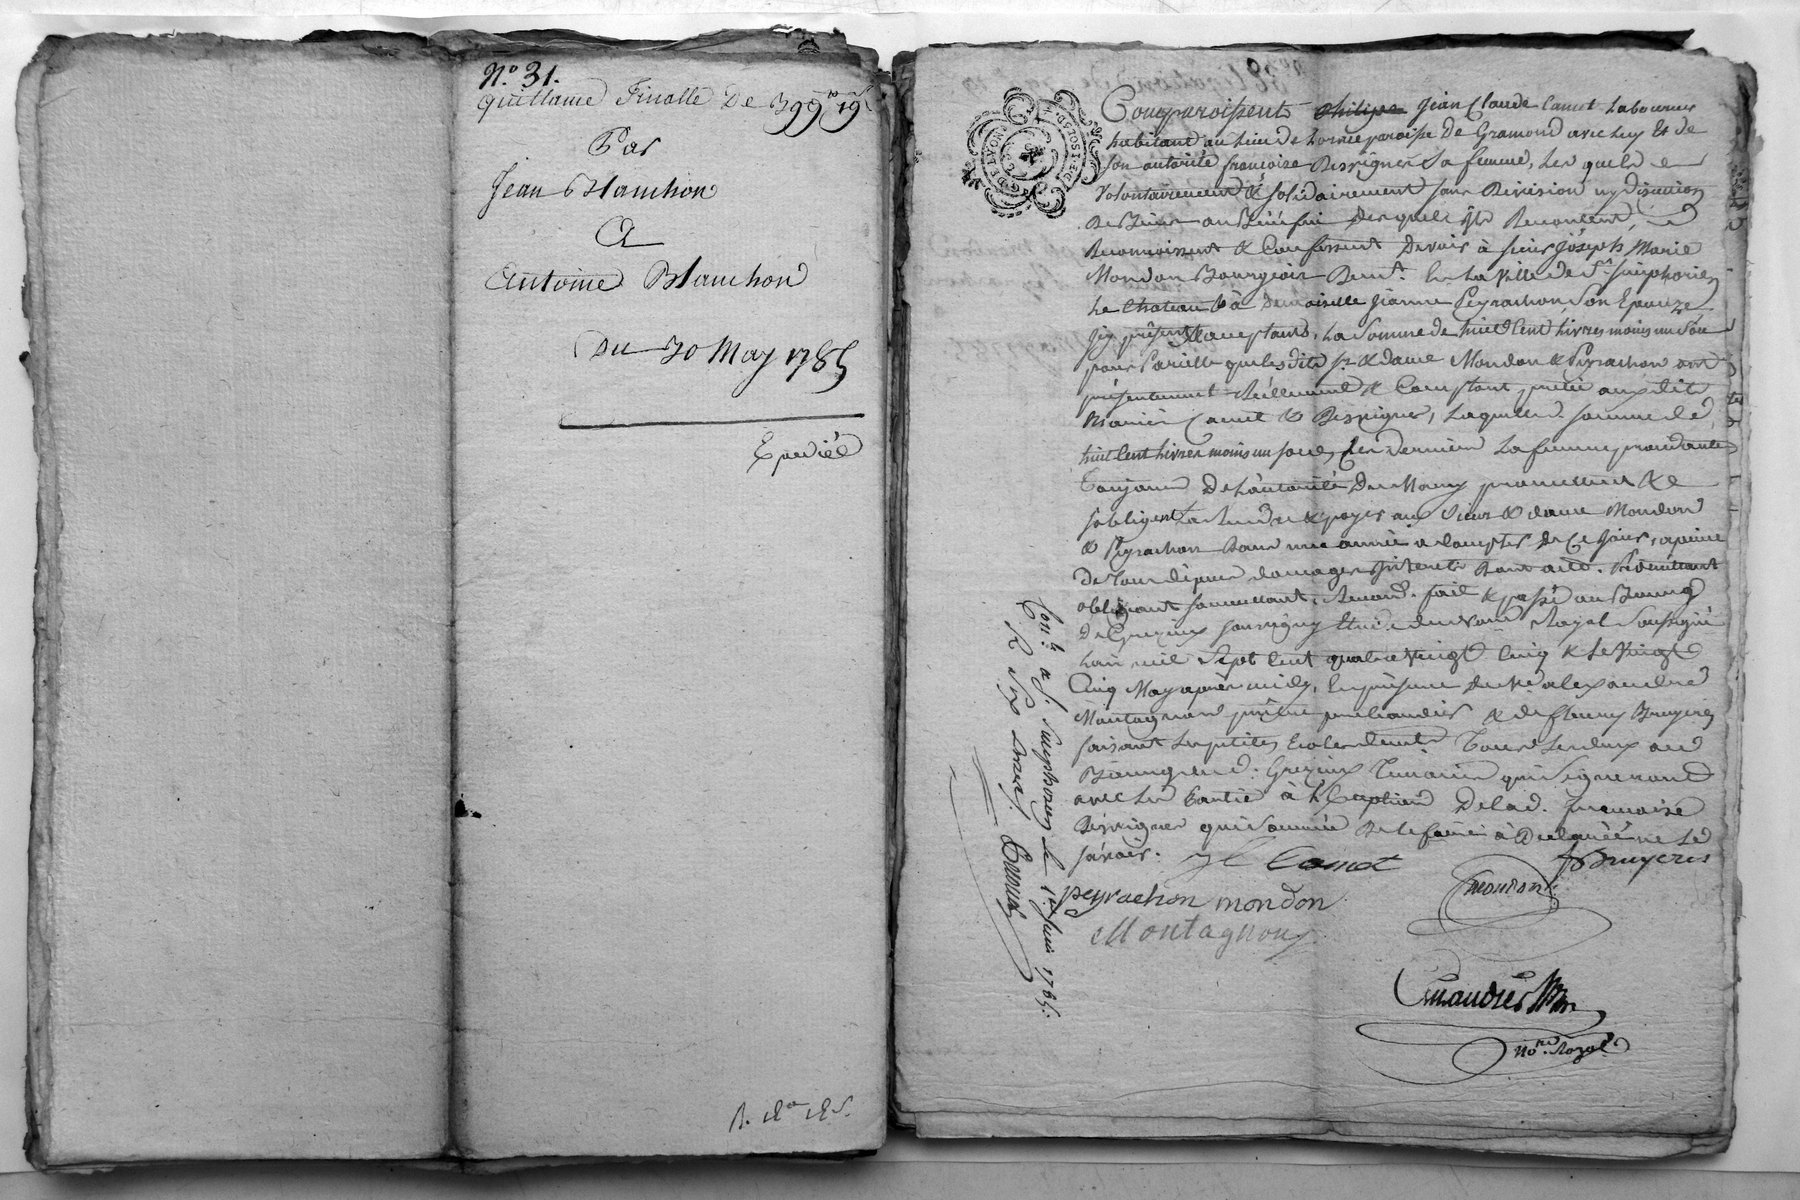 N.o 31.
quittance Finalle De 399 lt 19 s
Par
Jean Blanchon
A
Antoine Blanchon
Du 30 May 1785
Expediée
Comparoissent Philipe Jean Claude Camot Laboureur
habitant au lieu de paroisse De Gramond avec luy Et de
son autorité françoise Bessigner Sa femme, Les quels
Volontairement & solidairement sans Division ny discution
De Biens au Bénéfice Desquels ils Renoncent
Reconnoissent & Confessent Devoir à sieur Joseph Marie
Mondon Bourgeois Demt. En La Ville de St. Simphorien
Le Chateau & à Demoiselle Jeanne Peyrachon Son Epouze
Icy présents & acceptants, La Somme de huit Cent livres moins un Sou
pour Pareille que lesdits sr. & dame Mondon & Peyrachon ont
présentement Réellement & Comptant prêté auxdits
Mariés Camot & Bessigner, Laquelle somme de
huit Cent livres moins un sou, Ces derniers La femme procedante
Toujours De L'autorité Du Mary promettent &
s'obligent La Rendre & payer aux Sieur & dame Mondon
& Peyrachon Dans une année a Compter De Ce Jour, a peine
De Tous dépens domages Interets Dont acte. Promettant
obligeant soumettant, Renond. fait & passé au Bourg
De Grezieux souvigny Etude du no.re Royal Soussigné
L'an mil Sept Cent quatre Vingt Cinq & le Vingt
Cinq May après midy, En présence de Mre alexandre
Montagnon prêtre & de fleury Bruyeres
faisant Les petites Ecoles Tous les deux aud
Bourg de Grezieux Temoins qui Signeront
avec Les Parties à L'Exeption De lad. francoise
Bessigner qui Sommée De le faire à Declarée ne Le
savoir.
J C Camot
f Bruyeres
peyrachon mondon
mondon
Montagnon
No.re Royal
Con.le a S. Simphorien Le 1er Juin 1785.